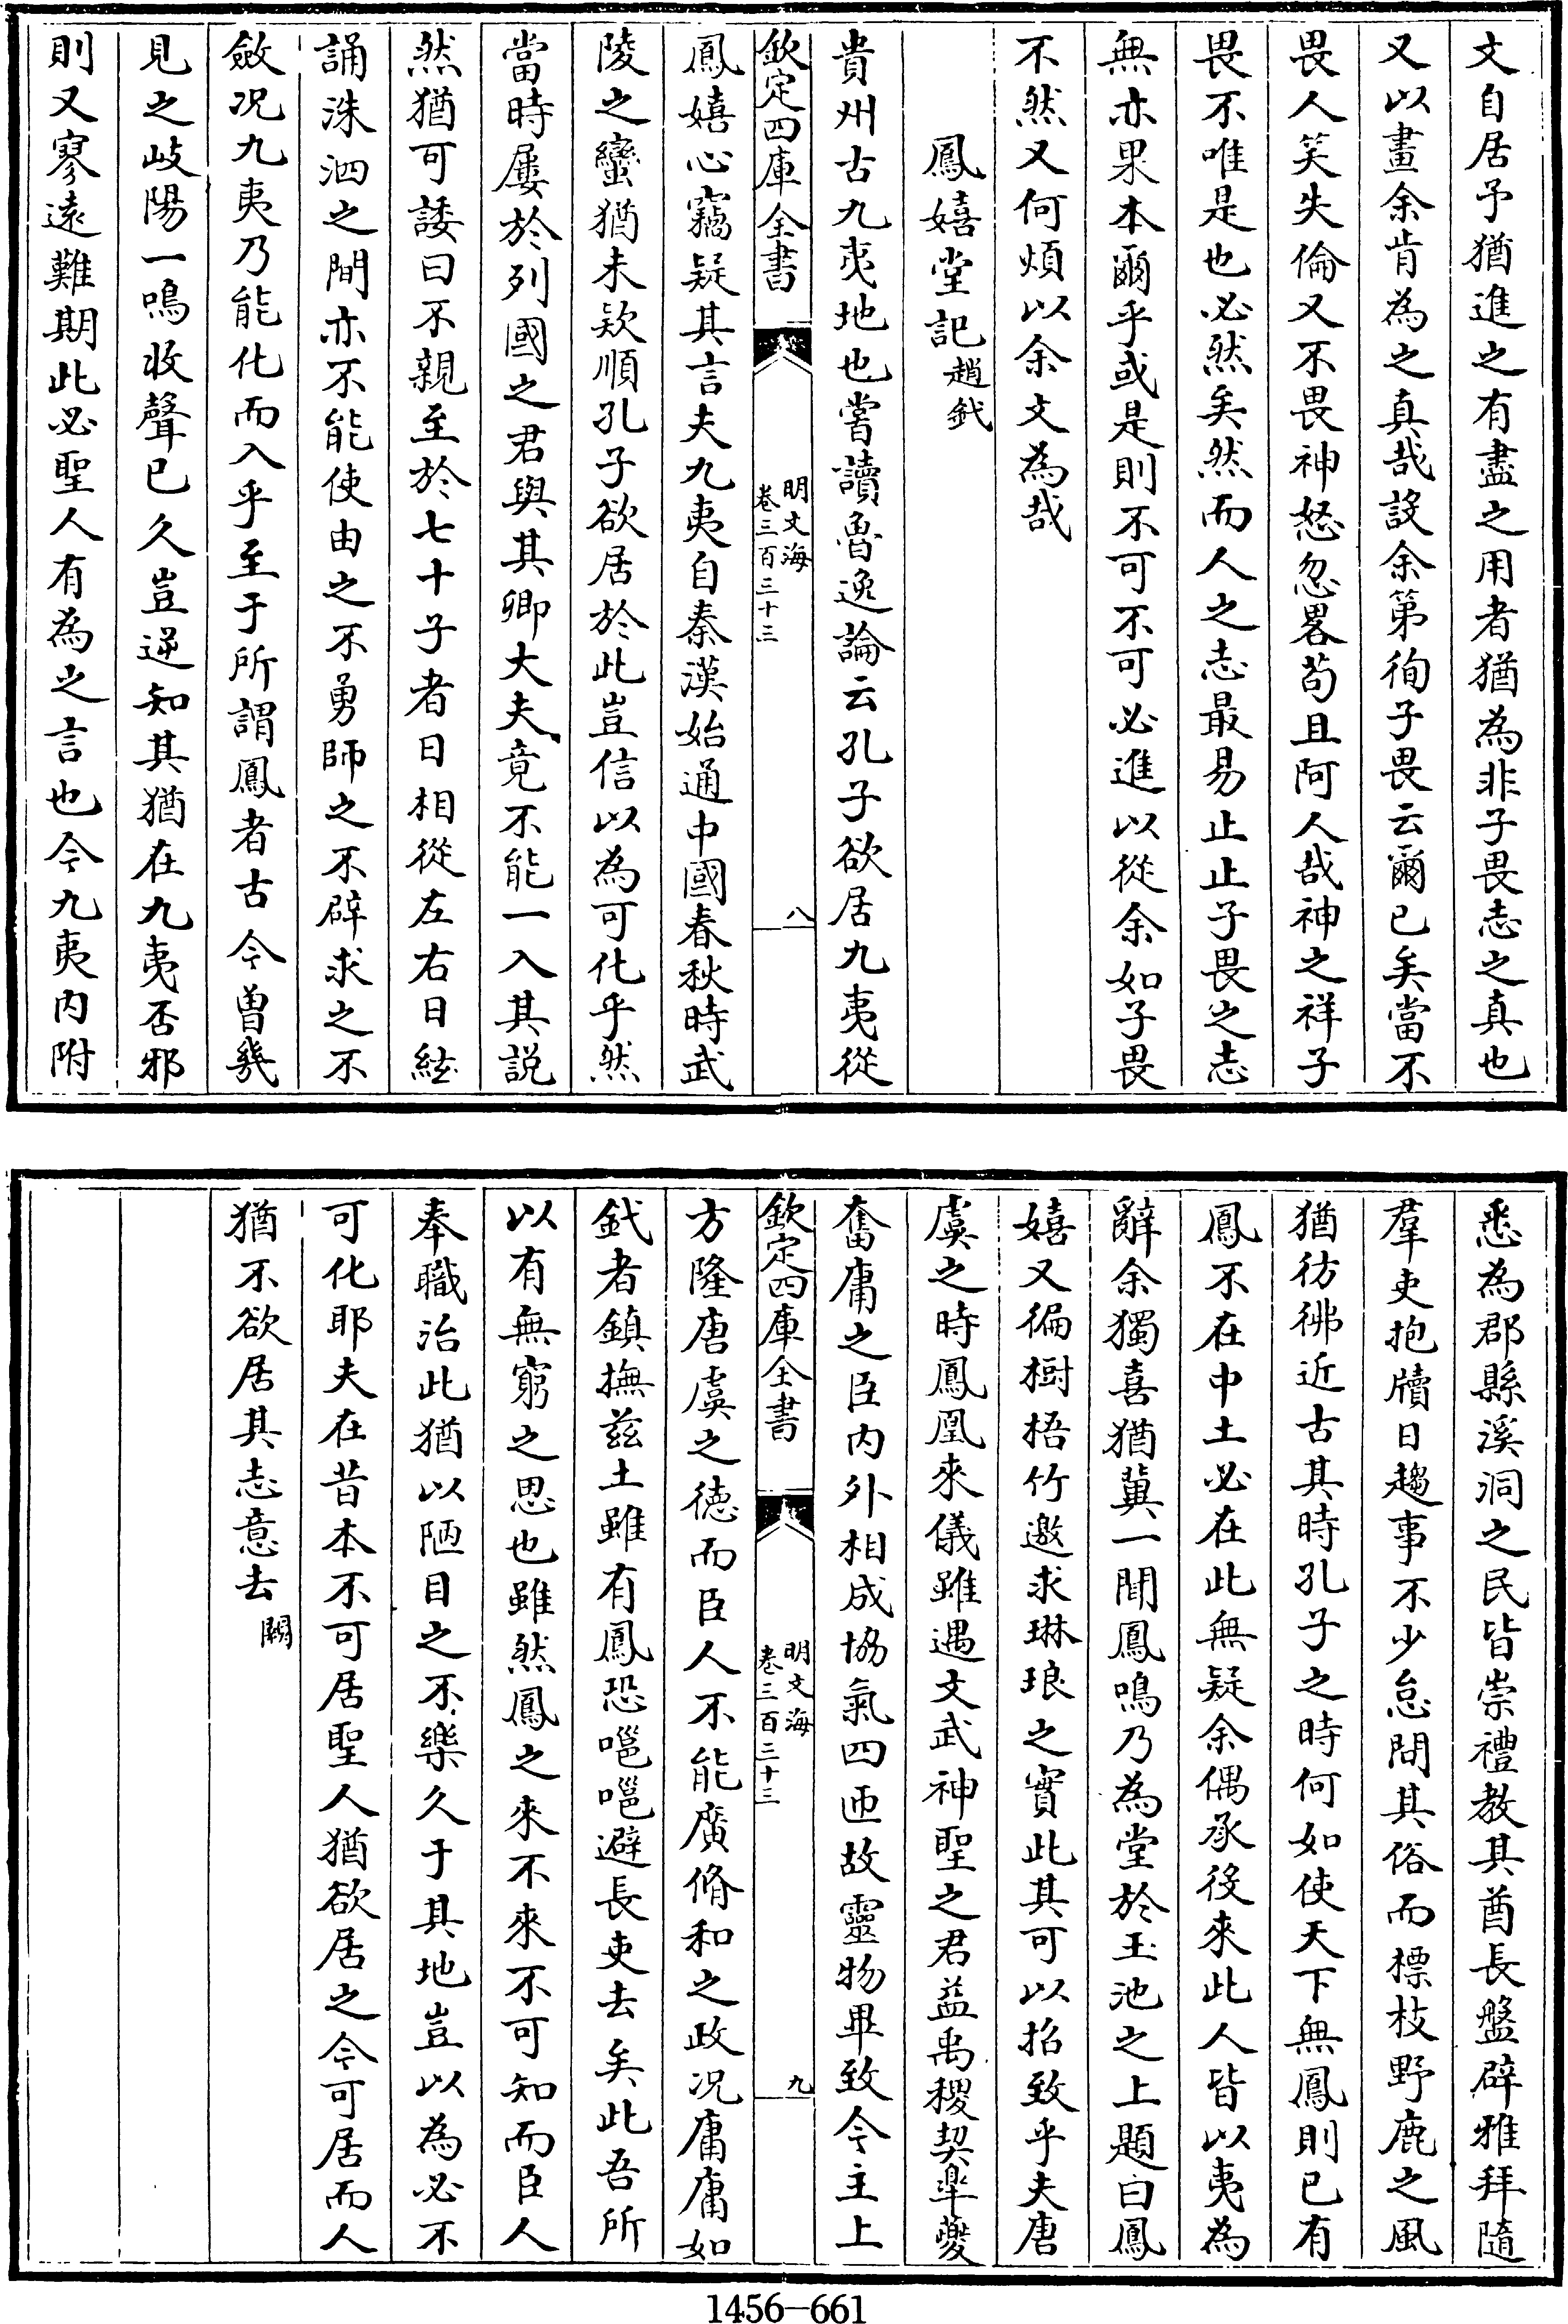 文自居予猶進之有盡之用者猶為非子畏志之真也
又以畫余肯為之真哉設余第徇子畏云爾已矣當不
畏人笑失倫又不畏神怒忽畧苟且阿人哉神之祥子
畏不唯是也必然矣然而人之志最易止止子畏之志
無亦果本爾乎或是則不可不可必進以從余如子畏
不然又何煩以余文為哉
鳳嬉堂記趙釴
貴州古九夷地也嘗讀魯逸論云孔子欲居九夷從
欽定四庫全書
明文海
卷三百三十三
八
鳳嬉心竊疑其言夫九夷自秦漢始通中國春秋時武
陵之蠻猶未欵順孔子欲居於此豈信以為可化乎然
當時屢於列國之君與其卿大夫竟不能一入其説
然猶可諉曰不親至於七十子者日相從左右日絃
誦洙泗之間亦不能使由之不勇師之不辟求之不
斂况九夷乃能化而入乎至于所謂鳳者古今曽㡬
見之岐陽一鳴收聲已久豈逆知其猶在九夷否邪
則又寥遠難期此必聖人有為之言也今九夷内附
悉為郡縣溪洞之民皆崇禮教其酋長盤辟雅拜隨
羣吏抱牘日趨事不少怠問其俗而標枝野鹿之風
猶彷彿近古其時孔子之時何如使天下無鳳則已有
鳳不在中土必在此無疑余偶承後來此人皆以夷為
辭余獨喜猶冀一聞鳳鳴乃為堂於玉池之上題曰鳳
嬉又徧樹梧竹邀求琳琅之實此其可以招致乎夫唐
虞之時鳳凰來儀雖遇文武神聖之君益禹稷契臯夔
奮庸之臣内外相成協氣四匝故靈物畢致今主上
欽定四庫全書
明文海
卷三百三十三
九
方隆唐虞之徳而臣人不能廣脩和之政况庸庸如
釴者鎮撫兹土雖有鳳恐嗈嗈避長吏去矣此吾所
以有無窮之思也雖然鳳之來不來不可知而臣人
奉職治此猶以陋目之不樂久于其地豈以為必不
可化耶夫在昔本不可居聖人猶欲居之今可居而人
猶不欲居其志意去闕
1456—661